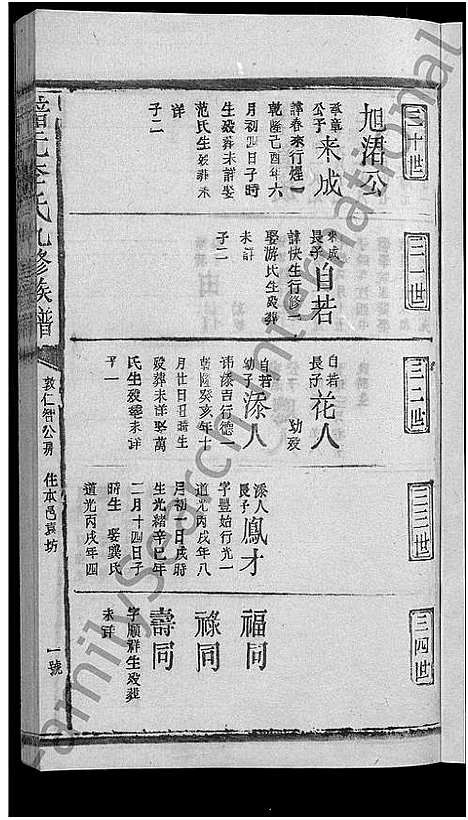 三十世
旭浯公
承章公子 来成
諱春來行煋一
乾隆己酉年六
月初四日子時
生殁葬未詳娶
范氏生殁葬未
詳
子二
三一世
來成長子 自若
諱快生行修一
娶游氏生殁葬
未詳
子二
三二世
自若長子 花人
幼殁
自若幼子 添人
諱添吉行德一
乾隆癸亥年十
月廿日丑時生
殁葬未詳娶萬
氏生殁葬未詳
子一
三三世
添人長子 鳳才
字豐始行光一
道光丙戌年八
月初十日戌時
生光緒辛巳年
二月十四日子
時生 娶龔氏
道光丙戌年四
三四世
福同
祿同
壽同
字順祥生殁葬
未詳
李氏九修族譜
敦仁智公房 住本邑袁坊
一號
FamilySearch International